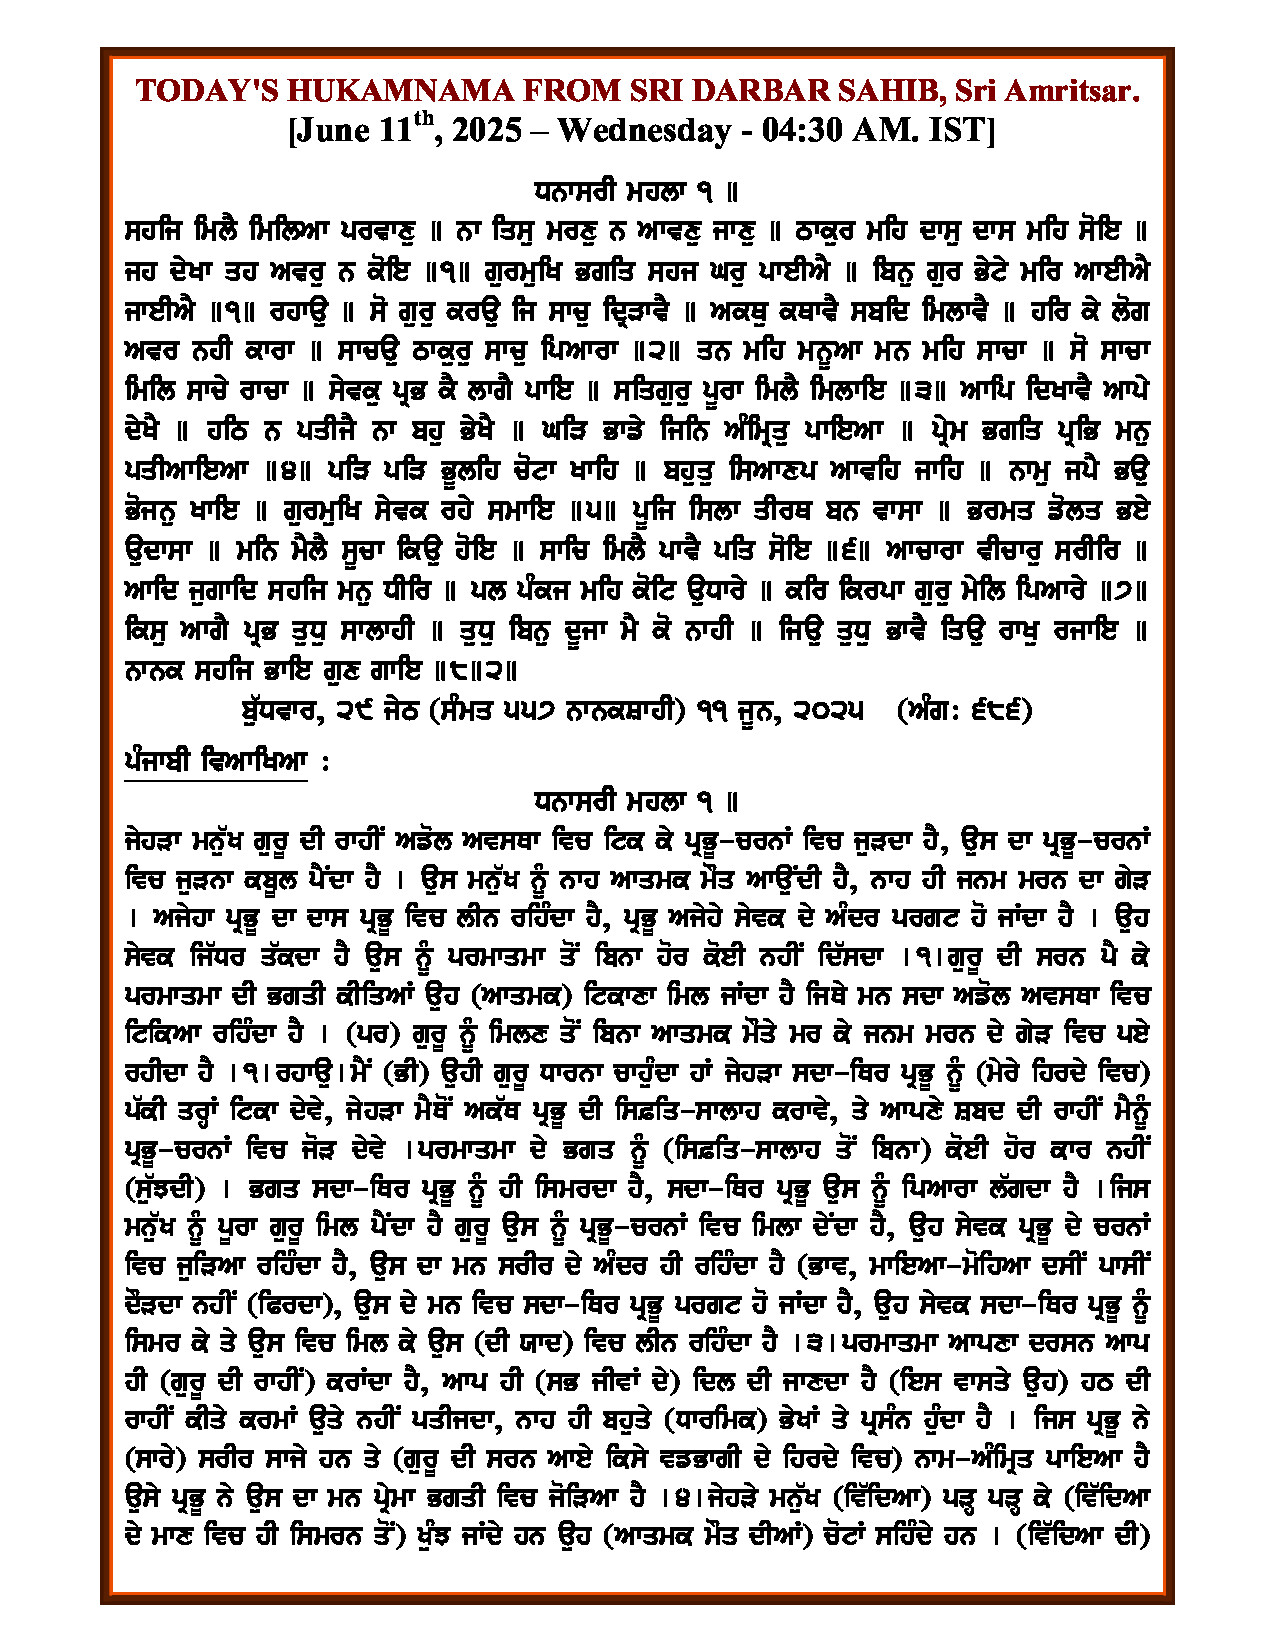 TODAY'S HUKAMNAMA FROM SRI DARBAR SAHIB, Sri Amritsar.
[June 11th, 2025 – Wednesday - 04:30 AM. IST]
ਧਨਾਸਰੀ ਮਹਲਾ ੧ ॥
ਸਹਜਿ ਮਿਲੈ ਮਿਲਿਆ ਪਰਵਾਣੁ ॥ ਨਾ ਤਿਸੁ ਮਰਣੁ ਨ ਆਵਣੁ ਜਾਣੁ ॥ ਠਾਕੁਰ ਮਹਿ ਦਾਸੁ ਦਾਸ ਮਹਿ ਸੋਇ ॥
ਜਹ ਦੇਖਾ ਤਹ ਅਵਰੁ ਨ ਕੋਇ ॥੧॥ ਗੁਰਮੁਖਿ ਭਗਤਿ ਸਹਜ ਘਰੁ ਪਾਈਐ ॥ ਬਿਨੁ ਗੁਰ ਭੇਟੇ ਮਰਿ ਆਈਐ
ਜਾਈਐ ॥੧॥ ਰਹਾਉ ॥ ਸੋ ਗੁਰੁ ਕਰਉ ਜਿ ਸਾਚੁ ਦ੍ਰਿੜਾਵੈ ॥ ਅਕਥੁ ਕਥਾਵੈ ਸਬਦਿ ਮਿਲਾਵੈ ॥ ਹਰਿ ਕੇ ਲੋਗ
ਅਵਰ ਨਹੀ ਕਾਰਾ ॥ ਸਾਚਉ ਠਾਕੁਰੁ ਸਾਚੁ ਪਿਆਰਾ ॥੨॥ ਤਨ ਮਹਿ ਮਨੂਆ ਮਨ ਮਹਿ ਸਾਚਾ ॥ ਸੋ ਸਾਚਾ
ਮਿਲਿ ਸਾਚੇ ਰਾਚਾ ॥ ਸੇਵਕੁ ਪ੍ਰਭ ਕੈ ਲਾਗੈ ਪਾਇ ॥ ਸਤਿਗੁਰੁ ਪੂਰਾ ਮਿਲੈ ਮਿਲਾਇ ॥੩॥ ਆਪਿ ਦਿਖਾਵੈ ਆਪੇ
ਦੇਖੈ ॥ ਹਠਿ ਨ ਪਤੀਜੈ ਨਾ ਬਹੁ ਭੇਖੈ ॥ ਘੜਿ ਭਾਡੇ ਜਿਨਿ ਅੰਮ੍ਰਿਤੁ ਪਾਇਆ ॥ ਪ੍ਰੇਮ ਭਗਤਿ ਪ੍ਰਭਿ ਮਨੁ
ਪਤੀਆਇਆ ॥੪॥ ਪੜਿ ਪੜਿ ਭੂਲਹਿ ਚੋਟਾ ਖਾਹਿ ॥ ਬਹੁਤੁ ਸਿਆਣਪ ਆਵਹਿ ਜਾਹਿ ॥ ਨਾਮੁ ਜਪੈ ਭਉ
ਭੋਜਨੁ ਖਾਇ ॥ ਗੁਰਮੁਖਿ ਸੇਵਕ ਰਹੇ ਸਮਾਇ ॥੫॥ ਪੂਜਿ ਸਿਲਾ ਤੀਰਥ ਬਨ ਵਾਸਾ ॥ ਭਰਮਤ ਡੋਲਤ ਭਏ
ਉਦਾਸਾ ॥ ਮਨਿ ਮੈਲੈ ਸੂਚਾ ਕਿਉ ਹੋਇ ॥ ਸਾਚਿ ਮਿਲੈ ਪਾਵੈ ਪਤਿ ਸੋਇ ॥੬॥ ਆਚਾਰਾ ਵੀਚਾਰੁ ਸਰੀਰਿ ॥
ਆਦਿ ਜੁਗਾਦਿ ਸਹਜਿ ਮਨੁ ਧੀਰਿ ॥ ਪਲ ਪੰਕਜ ਮਹਿ ਕੋਟਿ ਉਧਾਰੇ ॥ ਕਰਿ ਕਿਰਪਾ ਗੁਰੁ ਮੇਲਿ ਪਿਆਰੇ ॥੭॥
ਕਿਸੁ ਆਗੈ ਪ੍ਰਭ ਤੁਧੁ ਸਾਲਾਹੀ ॥ ਤੁਧੁ ਬਿਨੁ ਦੂਜਾ ਮੈ ਕੋ ਨਾਹੀ ॥ ਜਿਉ ਤੁਧੁ ਭਾਵੈ ਤਿਉ ਰਾਖੁ ਰਜਾਇ ॥
ਨਾਨਕ ਸਹਜਿ ਭਾਇ ਗੁਣ ਗਾਇ ॥੮॥੨॥
ਬੁੱਧਵਾਰ, ੨੯ ਜੇਠ (ਸੰਮਤ ੫੫੭ ਨਾਨਕਸ਼ਾਹੀ) ੧੧ ਜੂਨ, ੨੦੨੫ (ਅੰਗ: ੬੮੬)
ਪੰਜਾਬੀ ਵਿਆਖਿਆ :
ਧਨਾਸਰੀ ਮਹਲਾ ੧ ॥
ਜੇਹੜਾ ਮਨੁੱਖ ਗੁਰੂ ਦੀ ਰਾਹੀਂ ਅਡੋਲ ਅਵਸਥਾ ਵਿਚ ਟਿਕ ਕੇ ਪ੍ਰਭੂ-ਚਰਨਾਂ ਵਿਚ ਜੁੜਦਾ ਹੈ, ਉਸ ਦਾ ਪ੍ਰਭੂ-ਚਰਨਾਂ
ਵਿਚ ਜੁੜਨਾ ਕਬੂਲ ਪੈਂਦਾ ਹੈ । ਉਸ ਮਨੁੱਖ ਨੂੰ ਨਾਹ ਆਤਮਕ ਮੌਤ ਆਉਂਦੀ ਹੈ, ਨਾਹ ਹੀ ਜਨਮ ਮਰਨ ਦਾ ਗੇੜ
। ਅਜੇਹਾ ਪ੍ਰਭੂ ਦਾ ਦਾਸ ਪ੍ਰਭੂ ਵਿਚ ਲੀਨ ਰਹਿੰਦਾ ਹੈ, ਪ੍ਰਭੂ ਅਜੇਹੇ ਸੇਵਕ ਦੇ ਅੰਦਰ ਪਰਗਟ ਹੋ ਜਾਂਦਾ ਹੈ । ਉਹ
ਸੇਵਕ ਜਿੱਧਰ ਤੱਕਦਾ ਹੈ ਉਸ ਨੂੰ ਪਰਮਾਤਮਾ ਤੋਂ ਬਿਨਾ ਹੋਰ ਕੋਈ ਨਹੀਂ ਦਿੱਸਦਾ ।੧।ਗੁਰੂ ਦੀ ਸਰਨ ਪੈ ਕੇ
ਪਰਮਾਤਮਾ ਦੀ ਭਗਤੀ ਕੀਤਿਆਂ ਉਹ (ਆਤਮਕ) ਟਿਕਾਣਾ ਮਿਲ ਜਾਂਦਾ ਹੈ ਜਿਥੇ ਮਨ ਸਦਾ ਅਡੋਲ ਅਵਸਥਾ ਵਿਚ
ਟਿਕਿਆ ਰਹਿੰਦਾ ਹੈ । (ਪਰ) ਗੁਰੂ ਨੂੰ ਮਿਲਣ ਤੋਂ ਬਿਨਾ ਆਤਮਕ ਮੌਤੇ ਮਰ ਕੇ ਜਨਮ ਮਰਨ ਦੇ ਗੇੜ ਵਿਚ ਪਏ
ਰਹੀਦਾ ਹੈ ।੧।ਰਹਾਉ।ਮੈਂ (ਭੀ) ਉਹੀ ਗੁਰੂ ਧਾਰਨਾ ਚਾਹੁੰਦਾ ਹਾਂ ਜੇਹੜਾ ਸਦਾ-ਥਿਰ ਪ੍ਰਭੂ ਨੂੰ (ਮੇਰੇ ਹਿਰਦੇ ਵਿਚ)
ਪੱਕੀ ਤਰ੍ਹਾਂ ਟਿਕਾ ਦੇਵੇ, ਜੇਹੜਾ ਮੈਥੋਂ ਅਕੱਥ ਪ੍ਰਭੂ ਦੀ ਸਿਫ਼ਤਿ-ਸਾਲਾਹ ਕਰਾਵੇ, ਤੇ ਆਪਣੇ ਸ਼ਬਦ ਦੀ ਰਾਹੀਂ ਮੈਨੂੰ
ਪ੍ਰਭੂ-ਚਰਨਾਂ ਵਿਚ ਜੋੜ ਦੇਵੇ ।ਪਰਮਾਤਮਾ ਦੇ ਭਗਤ ਨੂੰ (ਸਿਫ਼ਤਿ-ਸਾਲਾਹ ਤੋਂ ਬਿਨਾ) ਕੋਈ ਹੋਰ ਕਾਰ ਨਹੀਂ
(ਸੁੱਝਦੀ) । ਭਗਤ ਸਦਾ-ਥਿਰ ਪ੍ਰਭੂ ਨੂੰ ਹੀ ਸਿਮਰਦਾ ਹੈ, ਸਦਾ-ਥਿਰ ਪ੍ਰਭੂ ਉਸ ਨੂੰ ਪਿਆਰਾ ਲੱਗਦਾ ਹੈ ।ਜਿਸ
ਮਨੁੱਖ ਨੂੰ ਪੂਰਾ ਗੁਰੂ ਮਿਲ ਪੈਂਦਾ ਹੈ ਗੁਰੂ ਉਸ ਨੂੰ ਪ੍ਰਭੂ-ਚਰਨਾਂ ਵਿਚ ਮਿਲਾ ਦੇਂਦਾ ਹੈ, ਉਹ ਸੇਵਕ ਪ੍ਰਭੂ ਦੇ ਚਰਨਾਂ
ਵਿਚ ਜੁੜਿਆ ਰਹਿੰਦਾ ਹੈ, ਉਸ ਦਾ ਮਨ ਸਰੀਰ ਦੇ ਅੰਦਰ ਹੀ ਰਹਿੰਦਾ ਹੈ (ਭਾਵ, ਮਾਇਆ-ਮੋਹਿਆ ਦਸੀਂ ਪਾਸੀਂ
ਦੌੜਦਾ ਨਹੀਂ (ਫਿਰਦਾ), ਉਸ ਦੇ ਮਨ ਵਿਚ ਸਦਾ-ਥਿਰ ਪ੍ਰਭੂ ਪਰਗਟ ਹੋ ਜਾਂਦਾ ਹੈ, ਉਹ ਸੇਵਕ ਸਦਾ-ਥਿਰ ਪ੍ਰਭੂ ਨੂੰ
ਸਿਮਰ ਕੇ ਤੇ ਉਸ ਵਿਚ ਮਿਲ ਕੇ ਉਸ (ਦੀ ਯਾਦ) ਵਿਚ ਲੀਨ ਰਹਿੰਦਾ ਹੈ ।੩।ਪਰਮਾਤਮਾ ਆਪਣਾ ਦਰਸਨ ਆਪ
ਹੀ (ਗੁਰੂ ਦੀ ਰਾਹੀਂ) ਕਰਾਂਦਾ ਹੈ, ਆਪ ਹੀ (ਸਭ ਜੀਵਾਂ ਦੇ) ਦਿਲ ਦੀ ਜਾਣਦਾ ਹੈ (ਇਸ ਵਾਸਤੇ ਉਹ) ਹਠ ਦੀ
ਰਾਹੀਂ ਕੀਤੇ ਕਰਮਾਂ ਉਤੇ ਨਹੀਂ ਪਤੀਜਦਾ, ਨਾਹ ਹੀ ਬਹੁਤੇ (ਧਾਰਮਿਕ) ਭੇਖਾਂ ਤੇ ਪ੍ਰਸੰਨ ਹੁੰਦਾ ਹੈ । ਜਿਸ ਪ੍ਰਭੂ ਨੇ
(ਸਾਰੇ) ਸਰੀਰ ਸਾਜੇ ਹਨ ਤੇ (ਗੁਰੂ ਦੀ ਸਰਨ ਆਏ ਕਿਸੇ ਵਡਭਾਗੀ ਦੇ ਹਿਰਦੇ ਵਿਚ) ਨਾਮ-ਅੰਮ੍ਰਿਤ ਪਾਇਆ ਹੈ
ਉਸੇ ਪ੍ਰਭੂ ਨੇ ਉਸ ਦਾ ਮਨ ਪ੍ਰੇਮਾ ਭਗਤੀ ਵਿਚ ਜੋੜਿਆ ਹੈ ।੪।ਜੇਹੜੇ ਮਨੁੱਖ (ਵਿੱਦਿਆ) ਪੜ੍ਹ ਪੜ੍ਹ ਕੇ (ਵਿੱਦਿਆ
ਦੇ ਮਾਣ ਵਿਚ ਹੀ ਸਿਮਰਨ ਤੋਂ) ਖੁੰਝ ਜਾਂਦੇ ਹਨ ਉਹ (ਆਤਮਕ ਮੌਤ ਦੀਆਂ) ਚੋਟਾਂ ਸਹਿੰਦੇ ਹਨ । (ਵਿੱਦਿਆ ਦੀ)